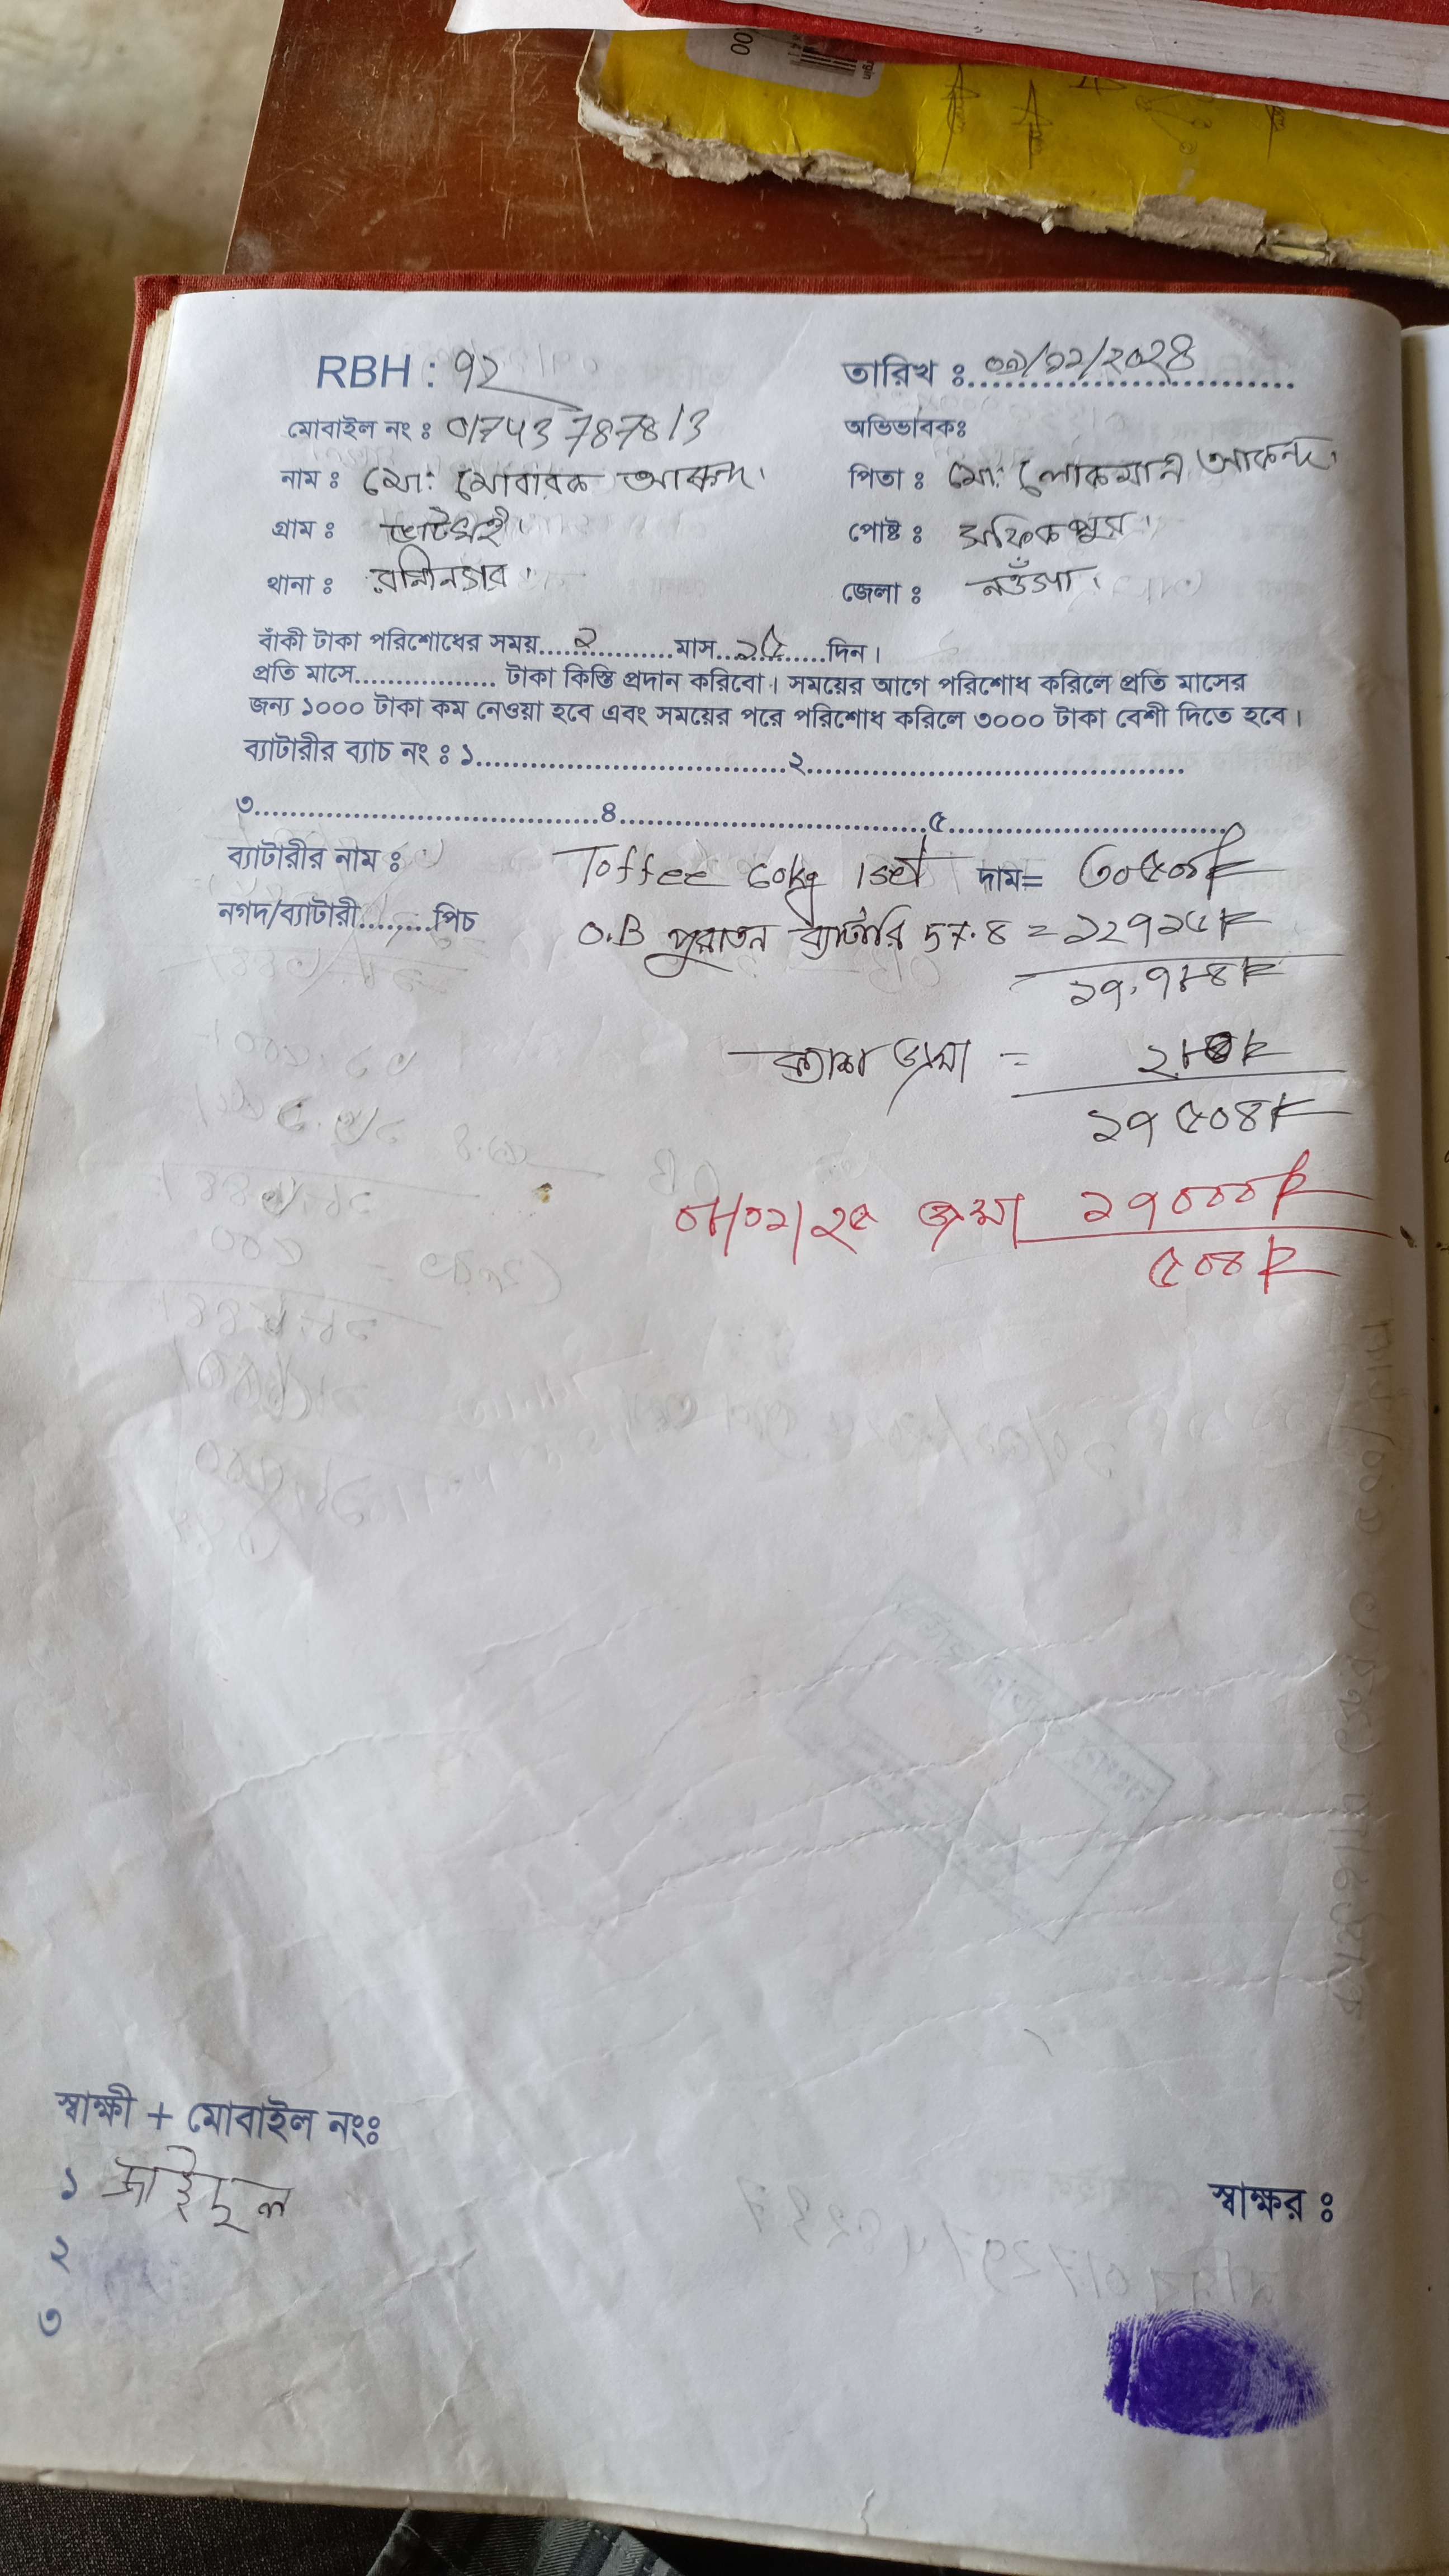 RBH : ৭২
তারিখ ঃ ০৯/১১/২০২৪
মোবাইল নং ঃ 01743787813
অভিভাবকঃ
নাম ঃ মো: মোবারক আকন্দ।
পিতা ঃ মো: লোকমান আকন্দ।
গ্রাম ঃ
পোষ্ট ঃ
থানা ঃ রানীনগর।
জেলা ঃ নওগাঁ।
বাঁকী টাকা পরিশোধের সময়....২....মাস...১৫....দিন।
প্রতি মাসে................ টাকা কিস্তি প্রদান করিবো। সময়ের আগে পরিশোধ করিলে প্রতি মাসের
জন্য ১০০০ টাকা কম নেওয়া হবে এবং সময়ের পরে পরিশোধ করিলে ৩০০০ টাকা বেশী দিতে হবে।
ব্যাটারীর ব্যাচ নং ঃ ১....................২....................
৩....................৪....................৫....................
ব্যাটারীর নাম ঃ Toffee 60kg 1set দাম= ৩০৫০৯৳
নগদ/ব্যাটারী........পিচ O.B পুরাতন ব্যাটারি ৫৭.৪ = ১২৭২৫৳
১৭,৭৮৪৳
ক্যাশ জমা = ২৮০৳
১৭৫০৪৳
০৮/০২/২৫ জমা ১৭০০০৳
৫০৪৳
স্বাক্ষী + মোবাইল নংঃ
১
স্বাক্ষর ঃ
২
৩